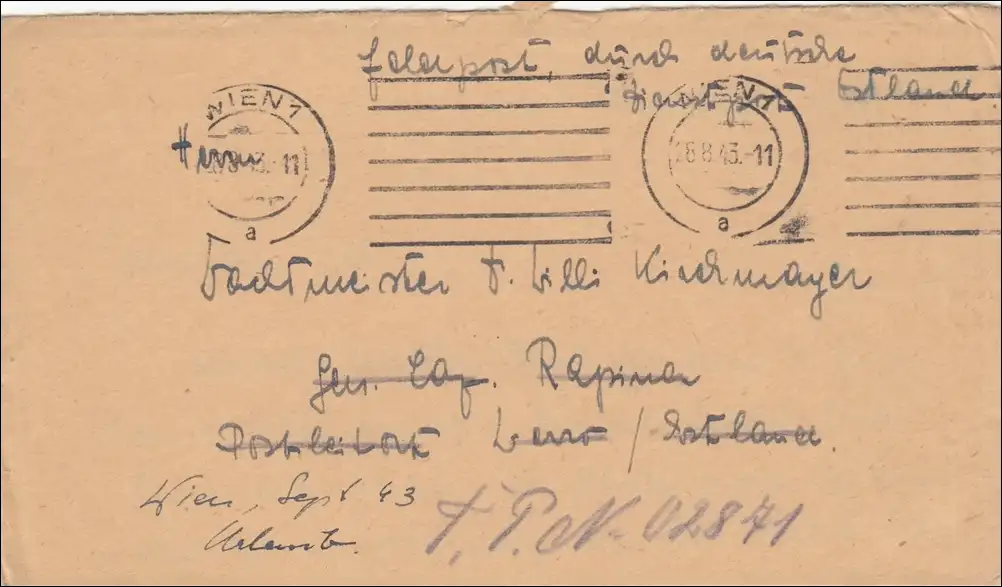 Feldpost, durch deutsche
Dienstpost Estland
WIEN 1
WIEN 1
Herrn
.8.43.-11
28.8.43.-11
a
a
Wachtmeister d. Willi Kirchmayer
Gen. Lag. Rapina
Postleitort Werro / Estland.
Wien, Sept 43
Urlaub.
F. P. N. 02871